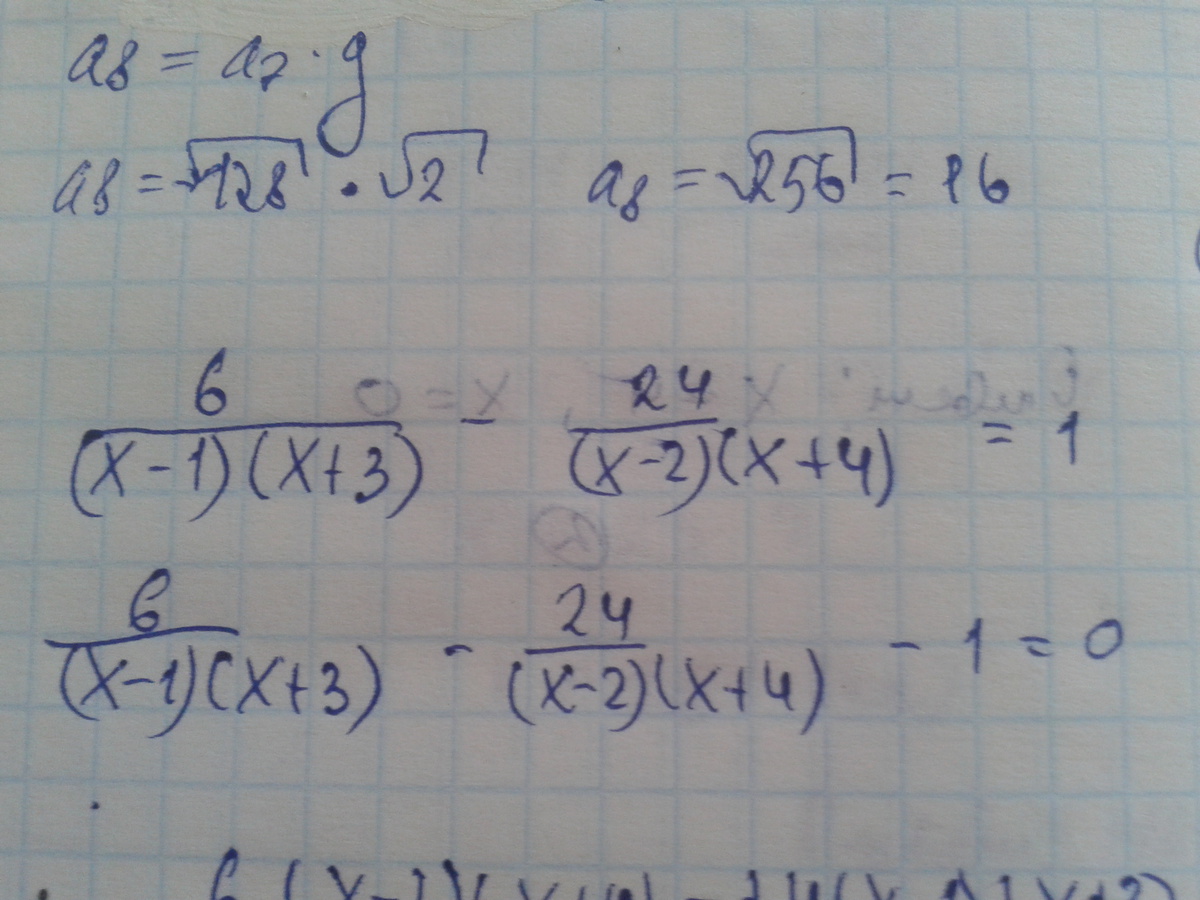 a₈ = a₇ · q
a₈ = √128 · √2 a₈ = √256 = 16
6/((x-1)(x+3)) - 24/((x-2)(x+4)) = 1
6/((x-1)(x+3)) - 24/((x-2)(x+4)) - 1 = 0